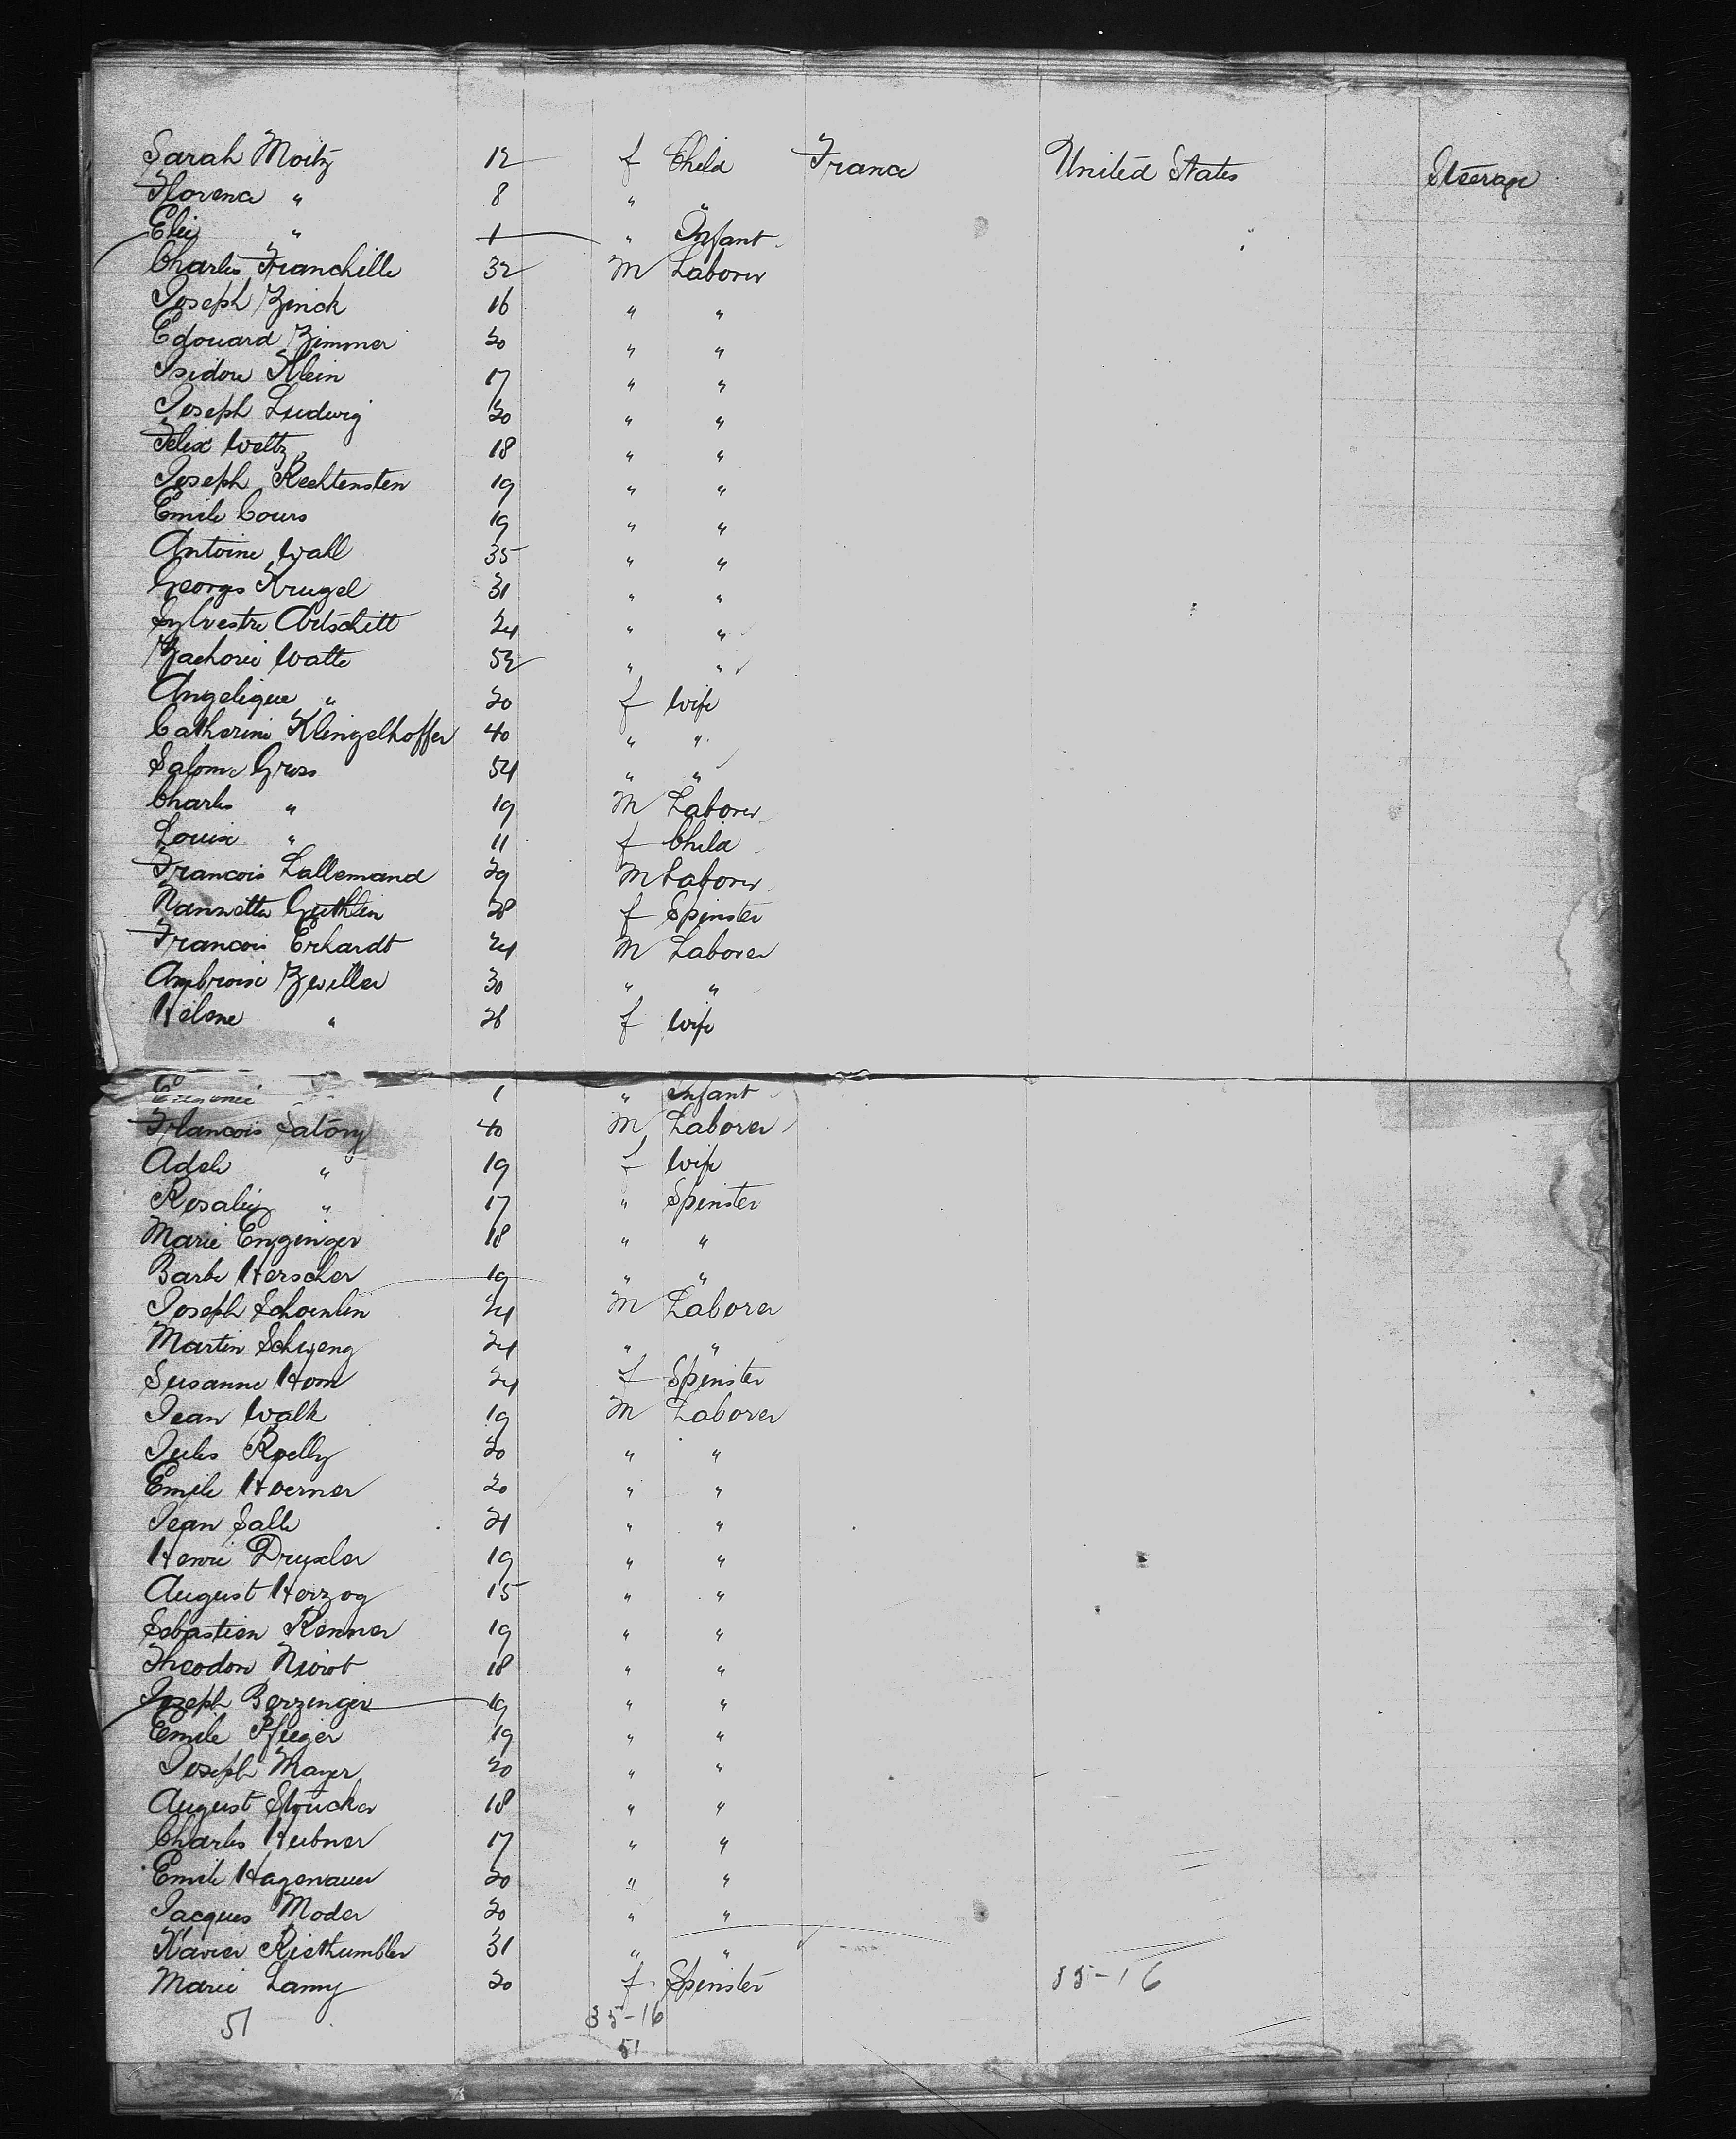 Sarah Moitz 12 f Child France United States Steerage
Florence " 8 " "
Elie " 1 " Infant
Charles Franchille 32 M Laborer
Joseph Zinck 16 " "
Edouard Zimmer 20 " "
Isidore Klein 17 " "
Joseph Ludwig 20 " "
Felix Weltz 18 " "
Joseph Rechtensten 19 " "
Emile Cours 19 " "
Antoine Wall 35 " "
Georges Krugel 31 " "
Sylvestre Artschitt 24 " "
Zachorie Watte 52 " "
Angelique " 20 f Wife
Catherine Klingelhoffer 40 " "
Salome Gross 54 " "
Charles " 19 M Laborer
Louise " 11 f Child
Francois Lallemand 29 M Laborer
Nannette Guthlin 28 f Spinster
Francois Erhardt 24 M Laborer
Ambroise Zwiller 30 " "
Helene " 26 f Wife
1 " Infant
Francois Satory 40 M Laborer
Adele " 19 f Wife
Rosalie " 17 " Spinster
Marie Enzinger 18 " "
Barbe Herscher 19 " "
Joseph Schoenlin 24 M Laborer
Martin Schweng 24 " "
Susanne Horn 24 f Spinster
Jean Walk 19 M Laborer
Jules Roelly 20 " "
Emile Hoerner 20 " "
Jean Salle 21 " "
Henri Druxler 19 " "
August Herzog 15 " "
Sebastien Renner 19 " "
Theodore Nivot 18 " "
Joseph Berzinger 19 " "
Emile Pflieger 19 " "
Joseph Mayer 20 " "
August Stoucker 18 " "
Charles Hubner 17 " "
Emile Hagenauer 20 " "
Jacques Moder 20 " "
Xavier Riethumbler 31 " "
Marie Lamy 20 f Spinster 35-16
51 35-16
51